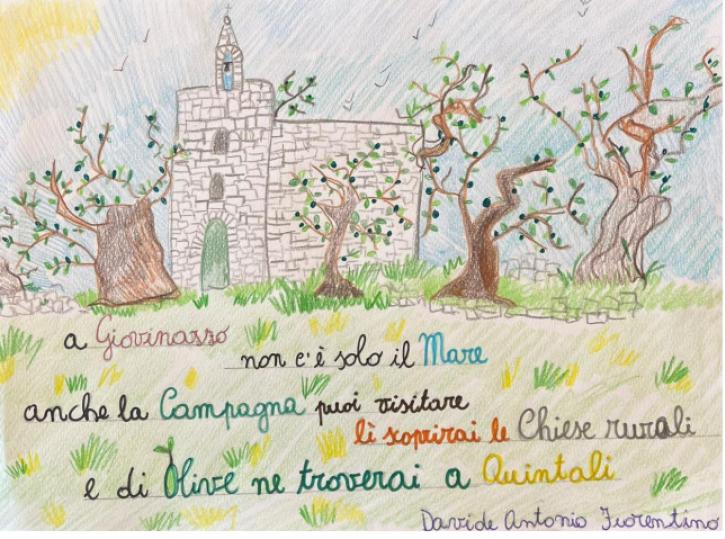 a Giovinazzo
non c'è solo il Mare
anche la Campagna puoi visitare
lì scoprirai le Chiese rurali
e di Olive ne troverai a Quintali
Davide Antonio Fiorentino